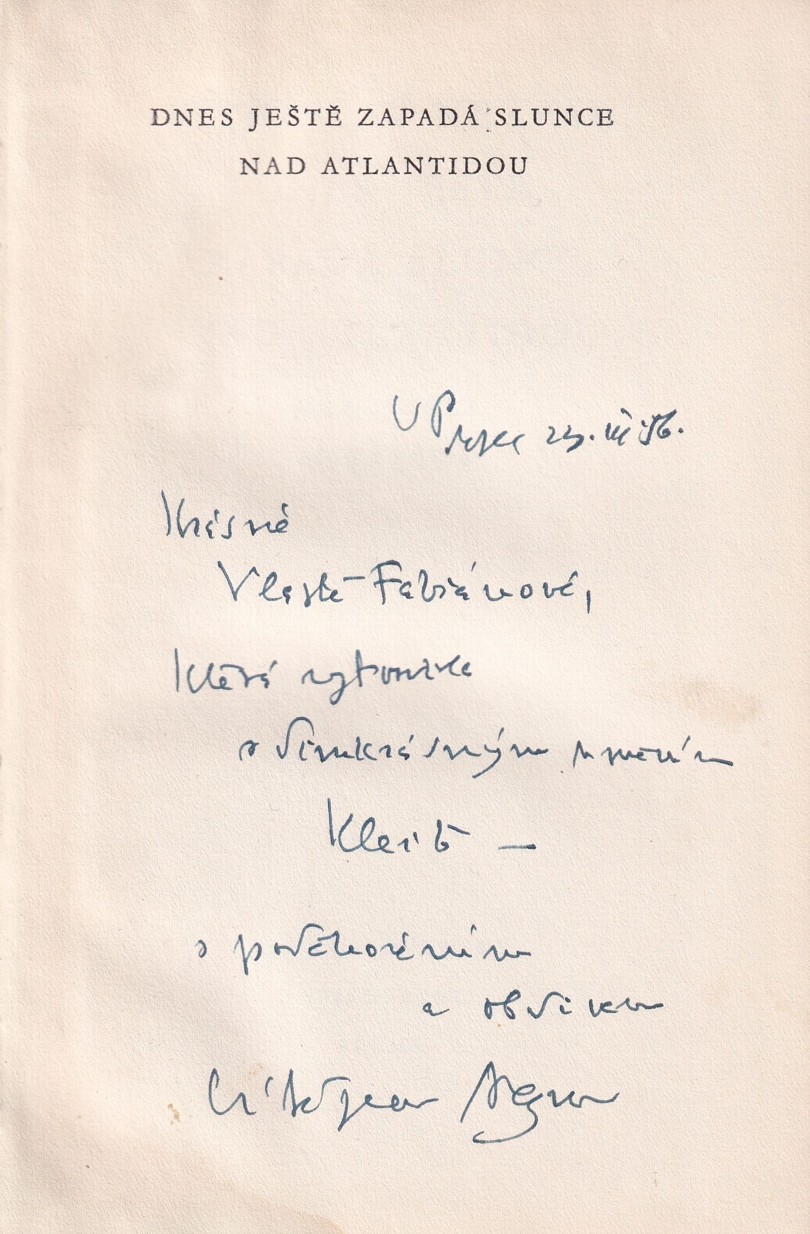 DNES JEŠTĚ ZAPADÁ SLUNCE
NAD ATLANTIDOU
V Praze 23. III. 56.
Krásné
Vlastě Fabiánové,
která vytvořila
s všemkrásným uměním
Kleitó —
s poděkováním
a obdivem
Vítězslav Nezval